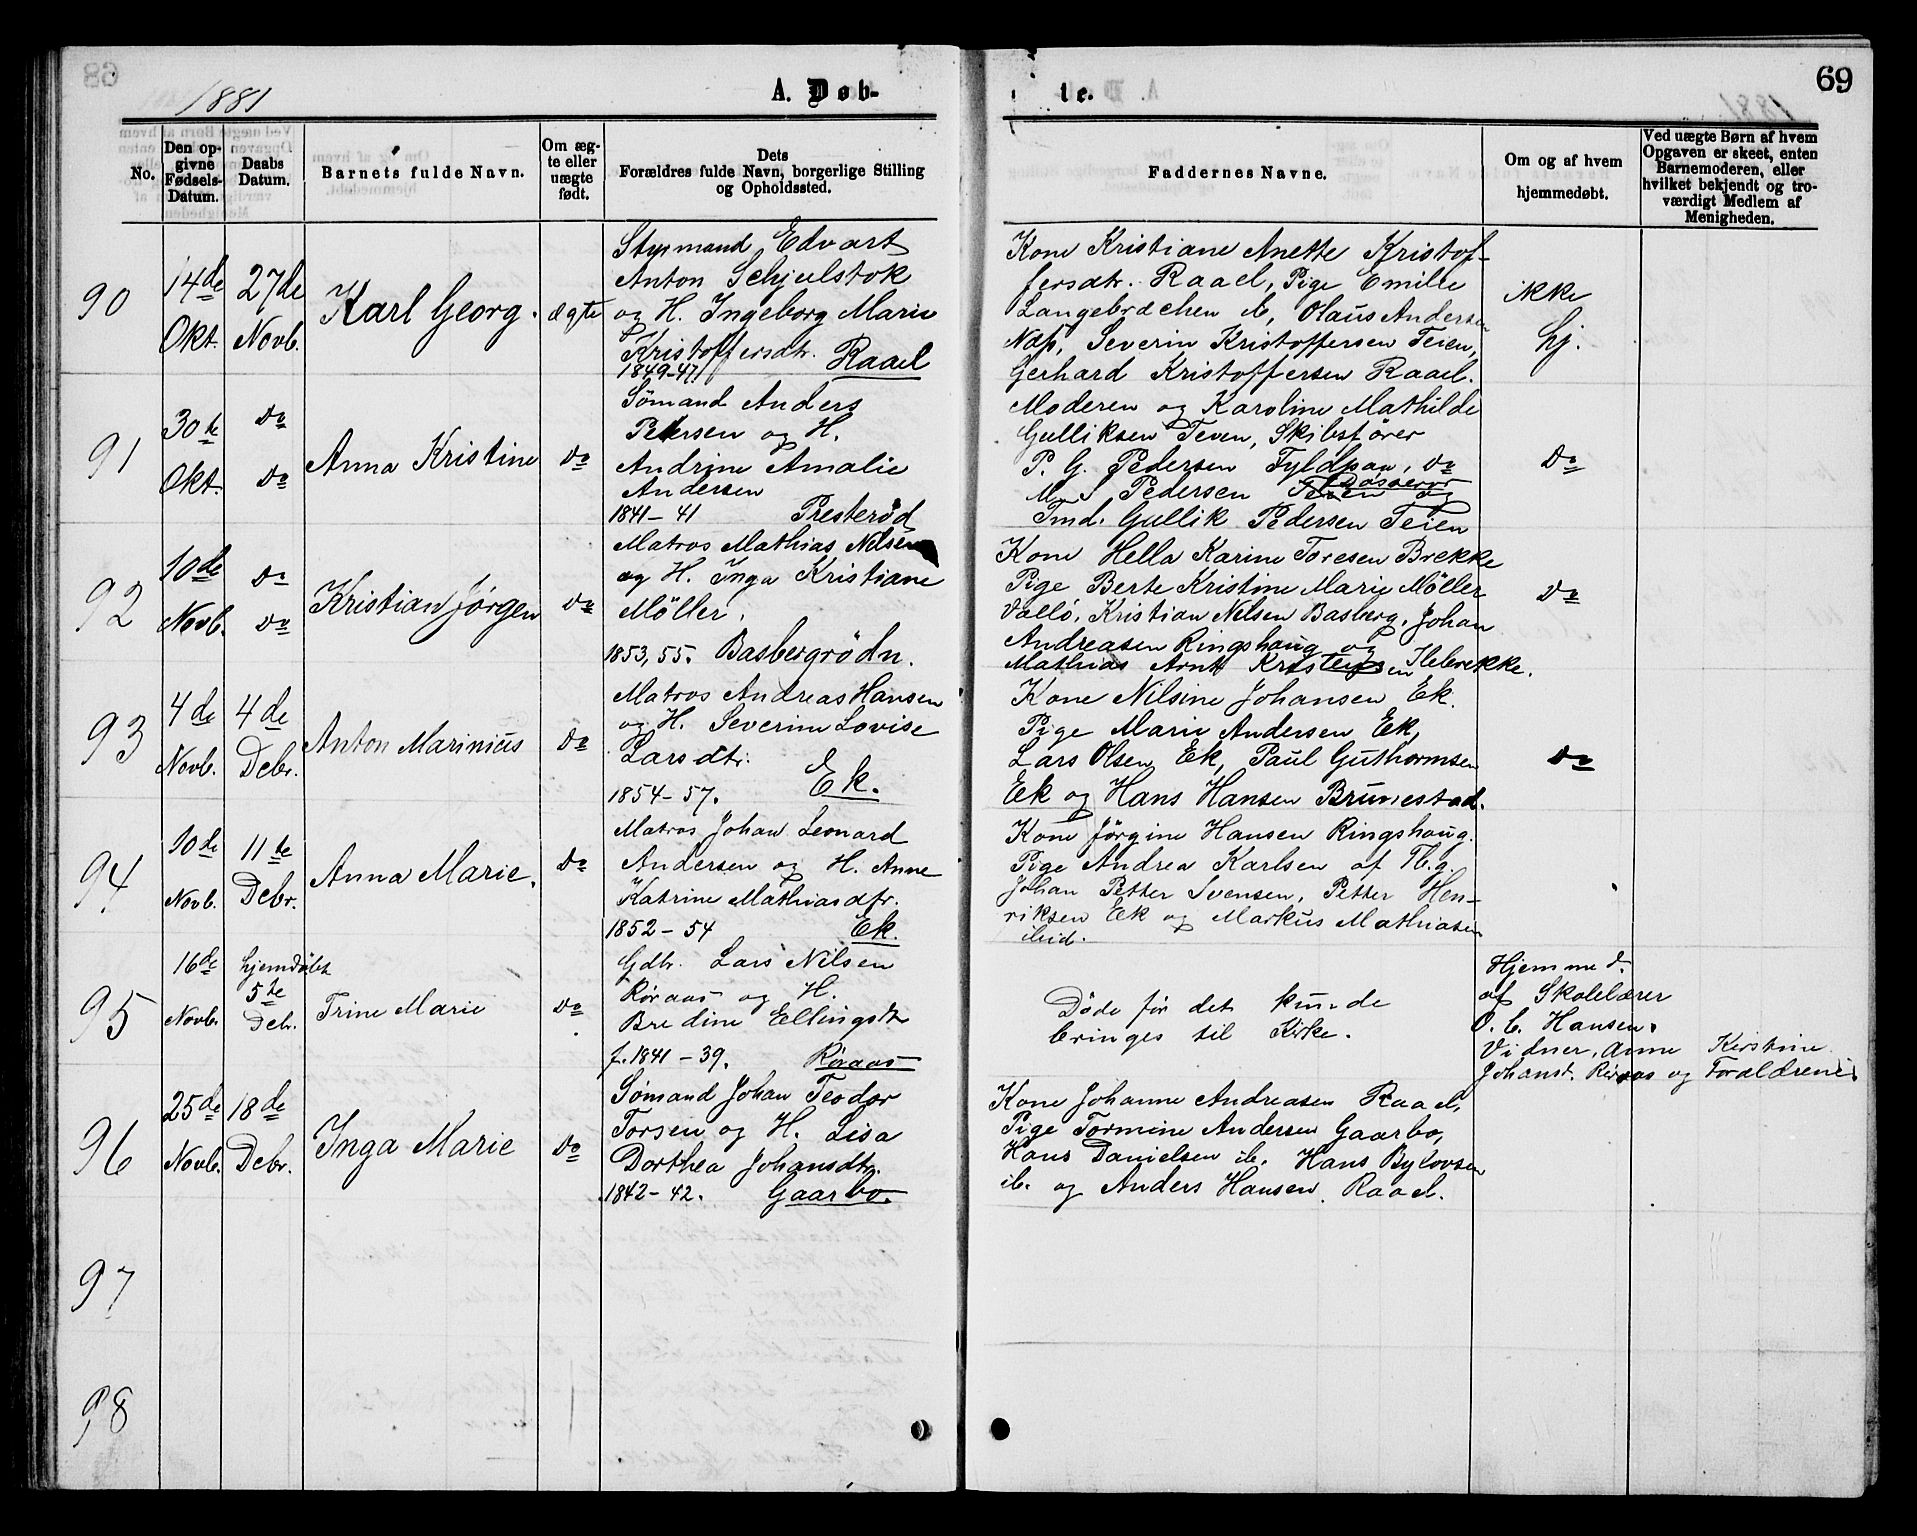 1881
A. Døb-
te.
69
No.
Den op-
givne
Fødsels-
Datum.
Daabs
Datum.
Barnets fulde Navn.
Om æg-
te eller
uægte
født.
Dets
Forældres fulde Navn, borgerlige Stilling
og Opholdssted.
Faddernes Navne.
Om og af hvem
hjemmedøbt.
Ved uægte Børn af hvem
Opgaven er skeet, enten
Barnemoderen, eller
hvilket bekjendt og tro-
værdigt Medlem af
Menigheden.
90
14de
Okt.
27de
Novb.
Karl Georg.
ægte
Styrmand Edvart
Anton Schjelstok
og H. Ingeborg Marie
Kristoffersdtr. Raael
1849-47
Kone Kristiane Anette Kristof-
fersdtr. Raael, Pige Emilie
Langebrechen ib, Olaus Andersen
Næs, Severin Kristoffersen Teien,
Gerhard Kristoffersen Raael.
ikke
hj.
91
30te
Okt.
do
do
Anna Kristine
do
Sömand Anders
Petersen og H.
Andrine Amalie
Andersen
1841-41 Presteröd
Moderen og Karoline Mathilde
Gulliksen Teven, Skibsförer
P. G. Pedersen Fyldpaa, do
M. S Pedersen Teien og
Tmd. Gullik Pedersen Teien
do
92
10de
Novb.
do
do
Kristian Jörgen
do
Matros Mathias Nilsen
og H. Inga Kristiane
Möller.
1853, 55. Basbergrödn.
Kone Hella Karine Toresen Brekke
Pige Berte Kristine Marie Möller
Vallö, Kristian Nilsen Basberg, Johan
Andreasen Ringshaug og
Mathias Arnt Kristensen Ilebrekke.
do
93
4de
Novb.
4de
Debr.
Anton Marinius
do
Matros Andreas Hansen
og H. Severine Lovise
Larsdtr.
1854-57. Ek.
Kone Nilsine Johansen Ek.
Pige Marie Andersen Ek,
Lars Olsen Ek, Paul Guthormsen
Ek og Hans Hansen Brunestad.
do
94
10de
Novb.
11te
Debr.
Anna Marie.
do
Matros Johan Leonard
Andersen og H. Anne
Katrine Mathiasdtr.
1852-54 Ek.
Kone Jörgine Hansen Ringshaug.
Pige Andrea Karlsen af Tb.g.
Johan Petter Svensen, Petter Hen-
riksen Ek og Markus Mathiasen
ibid.
95
16de
Novb.
hjemdöbt
5te
Deb.
Trine Marie
do
Gdbr. Lars Nilsen
Röraas og H.
Bredine Ellingsdt
f. 1841-39. Röraas
Döde för det kunde
bringes til Kirke.
Hjemme d.
af Skolelærer
O. C. Hansen.
Vidner, Anne Kirstine
Johansd. Röraas og Forældrene
96
25de
Novb.
18de
Debr.
Inga Marie
do
Sömand Johan Teodor
Torsen og H. Lisa
Dorthea Johansdtr.
1842-42. Gaarbo.
Kone Johanne Andreasen Raael,
Pige Tormine Andersen Gaarbo,
Hans Danielsen ib. Hans Bylovsen
ib. og Anders Hansen Raael.
97
98